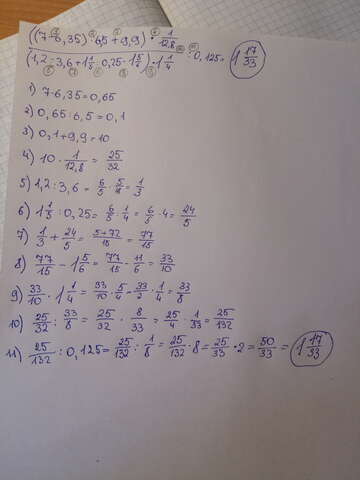 ((7-6,35):6,5+9,9)·1/12,8
(1,2:3,6+1 1/5:0,25-1 5/6)·1 1/4 :0,125= 1 17/33
1) 7-6,35=0,65
2) 0,65:6,5=0,1
3) 0,1+9,9=10
4) 10·1/12,8=25/32
5) 1,2:3,6=6/5·5/18=1/3
6) 1 1/5:0,25=6/5:1/4=6/5·4=24/5
7) 1/3+24/5=5+72/15=77/15
8) 77/15-1 5/6=77/15-11/6=33/10
9) 33/10·1 1/4=33/10·5/4=33/2·1/4=33/8
10) 25/32:33/8=25/32·8/33=25/4·1/33=25/132
11) 25/132:0,125=25/132:1/8=25/132·8=25/33·2=50/33=1 17/33